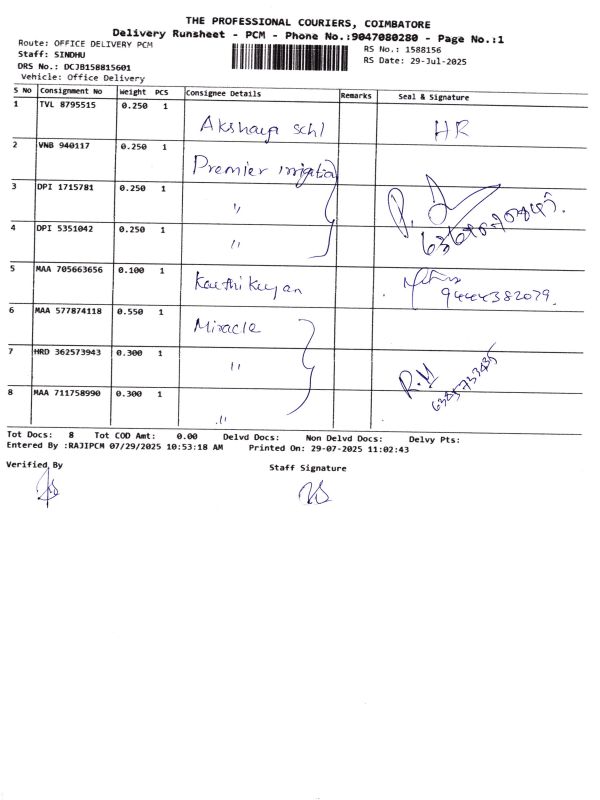 THE PROFESSIONAL COURIERS, COIMBATORE
Delivery Runsheet - PCM - Phone No.:9047080280 - Page No.:1
Route: OFFICE DELIVERY PCM
Staff: SINDHU
DRS No.: DCJB158815601
Vehicle: Office Delivery
RS No.: 1588156
RS Date: 29-Jul-2025
S No Consignment No Weight PCS Consignee Details Remarks Seal & Signature
1 TVL 8795515 0.250 1 Akshaya schl HR
2 VNB 940117 0.250 1 Premier irrigation
3 DPI 1715781 0.250 1 "
4 DPI 5351042 0.250 1 "
5 MAA 705663656 0.100 1 Karthikeyan 9444382079.
6 MAA 577874118 0.550 1 Miracle
7 HRD 362573943 0.300 1 "
8 MAA 711758990 0.300 1 "
Tot Docs: 8 Tot COD Amt: 0.00 Delvd Docs: Non Delvd Docs: Delvy Pts:
Entered By :RAJIPCM 07/29/2025 10:53:18 AM Printed On: 29-07-2025 11:02:43
Verified By
Staff Signature